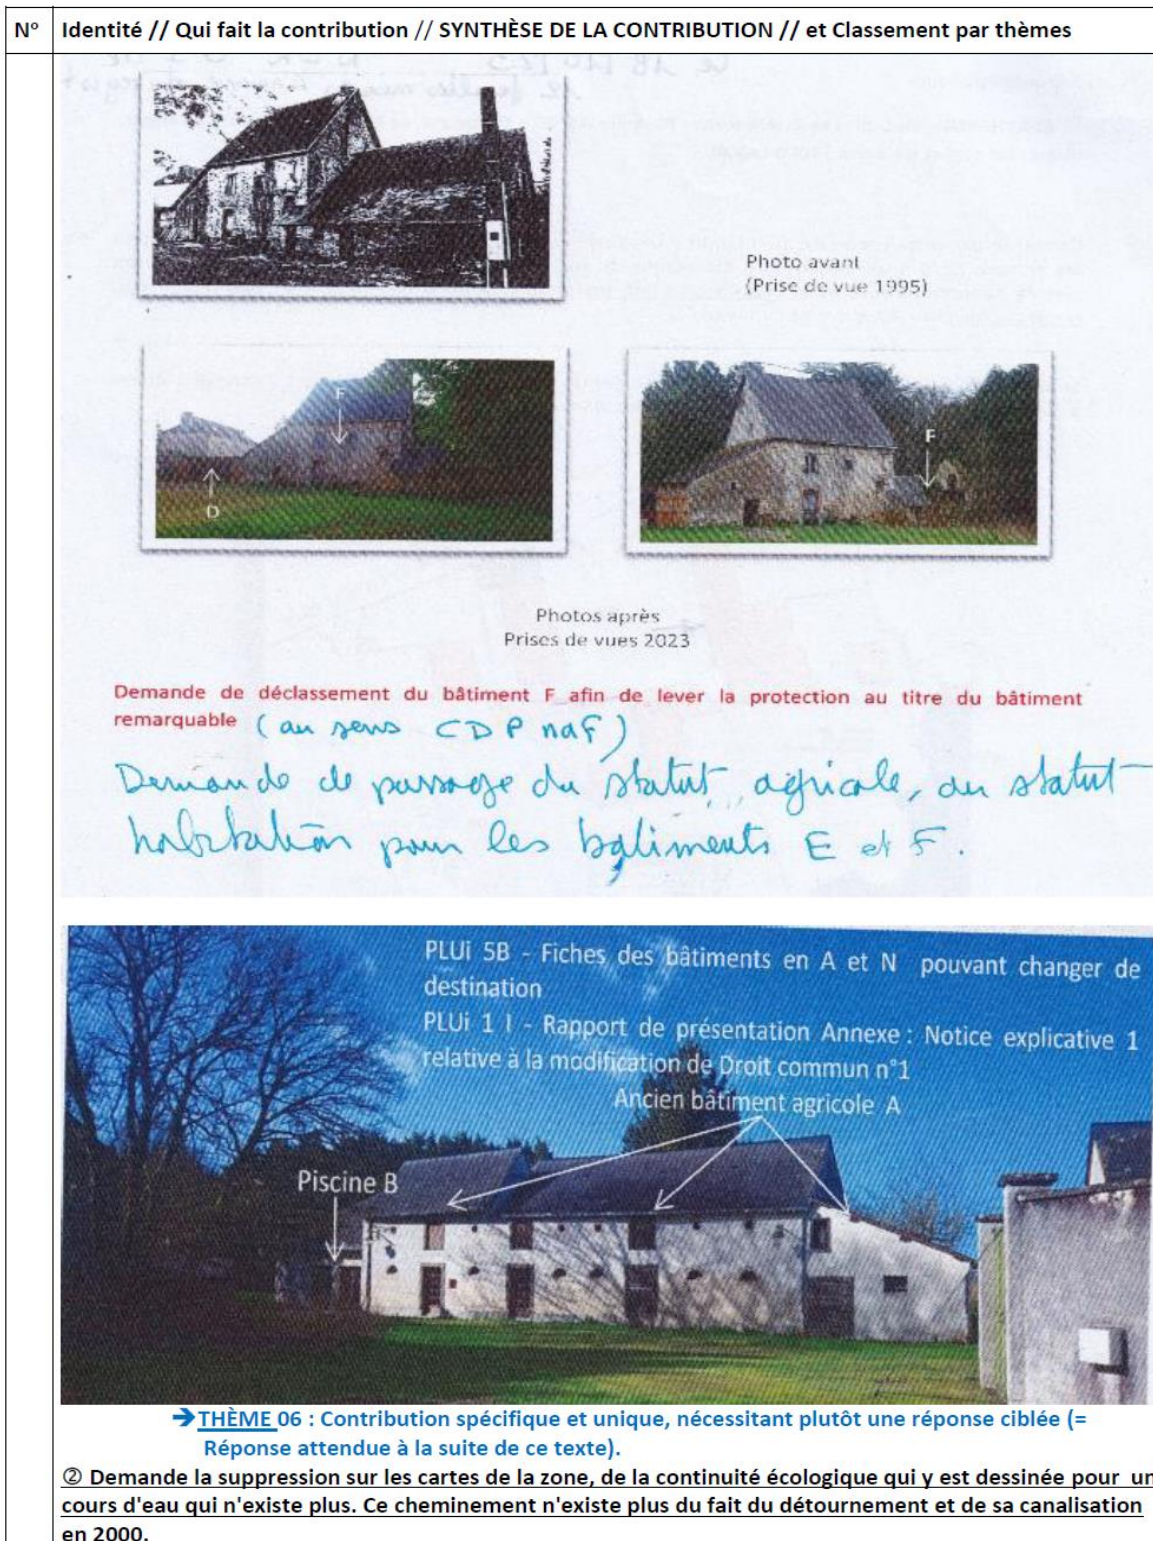 N° Identité // Qui fait la contribution // SYNTHÈSE DE LA CONTRIBUTION // et Classement par thèmes
Photo avant
(Prise de vue 1995)
F
D
F
Photos après
Prises de vues 2023
Demande de déclassement du bâtiment F afin de lever la protection au titre du bâtiment
remarquable (au sens CDPnaF)
Demande de passage du statut agricole, au statut
habitation pour les bâtiments E et F.
PLUi 5B - Fiches des bâtiments en A et N pouvant changer de
destination
PLUi 1 I - Rapport de présentation Annexe : Notice explicative 1
relative à la modification de Droit commun n°1
Ancien bâtiment agricole A
Piscine B
➔THÈME 06 : Contribution spécifique et unique, nécessitant plutôt une réponse ciblée (=
Réponse attendue à la suite de ce texte).
② Demande la suppression sur les cartes de la zone, de la continuité écologique qui y est dessinée pour un
cours d'eau qui n'existe plus. Ce cheminement n'existe plus du fait du détournement et de sa canalisation
en 2000.